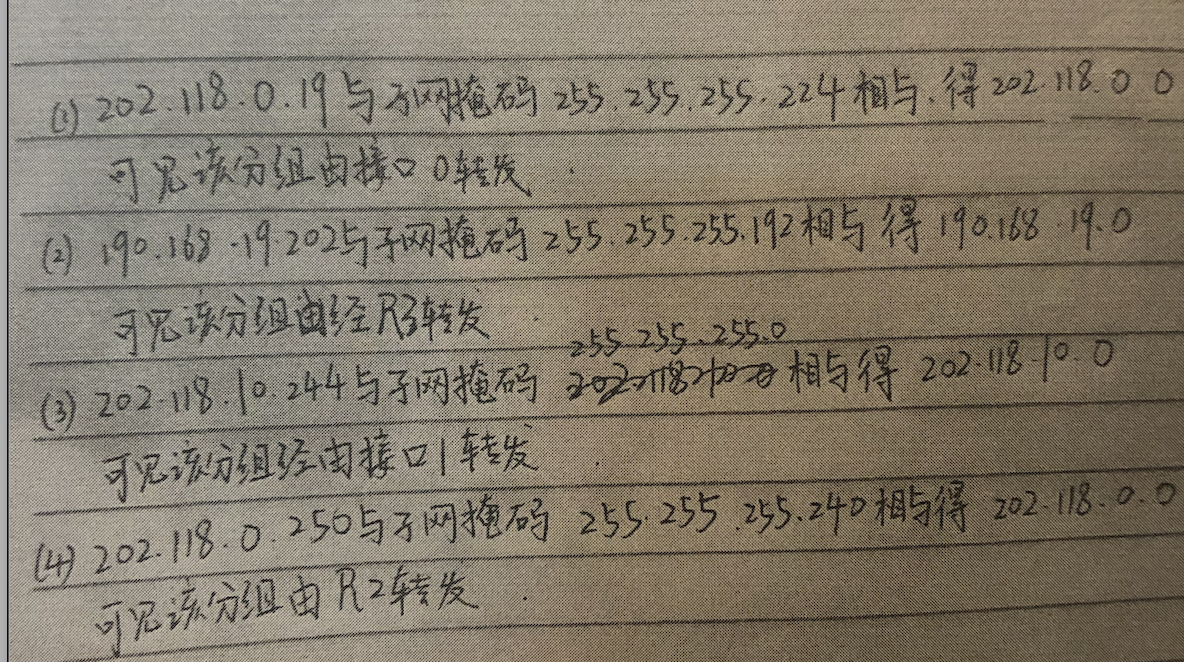 (1) 202.118.0.19与子网掩码 255.255.255.224相与.得202.118.0 0
可见该分组由接口0转发.
(2) 190.168.19.202与子网掩码 255.255.255.192相与 得190.168.19.0
可见该分组由经R3转发.
255.255.255.0
(3) 202.118.10.244与子网掩码 相与得 202.118.10.0
可见该分组经由接口1转发.
(4) 202.118.0.250与子网掩码 255.255.255.240相与得 202.118.0.0
可见该分组由R2转发.